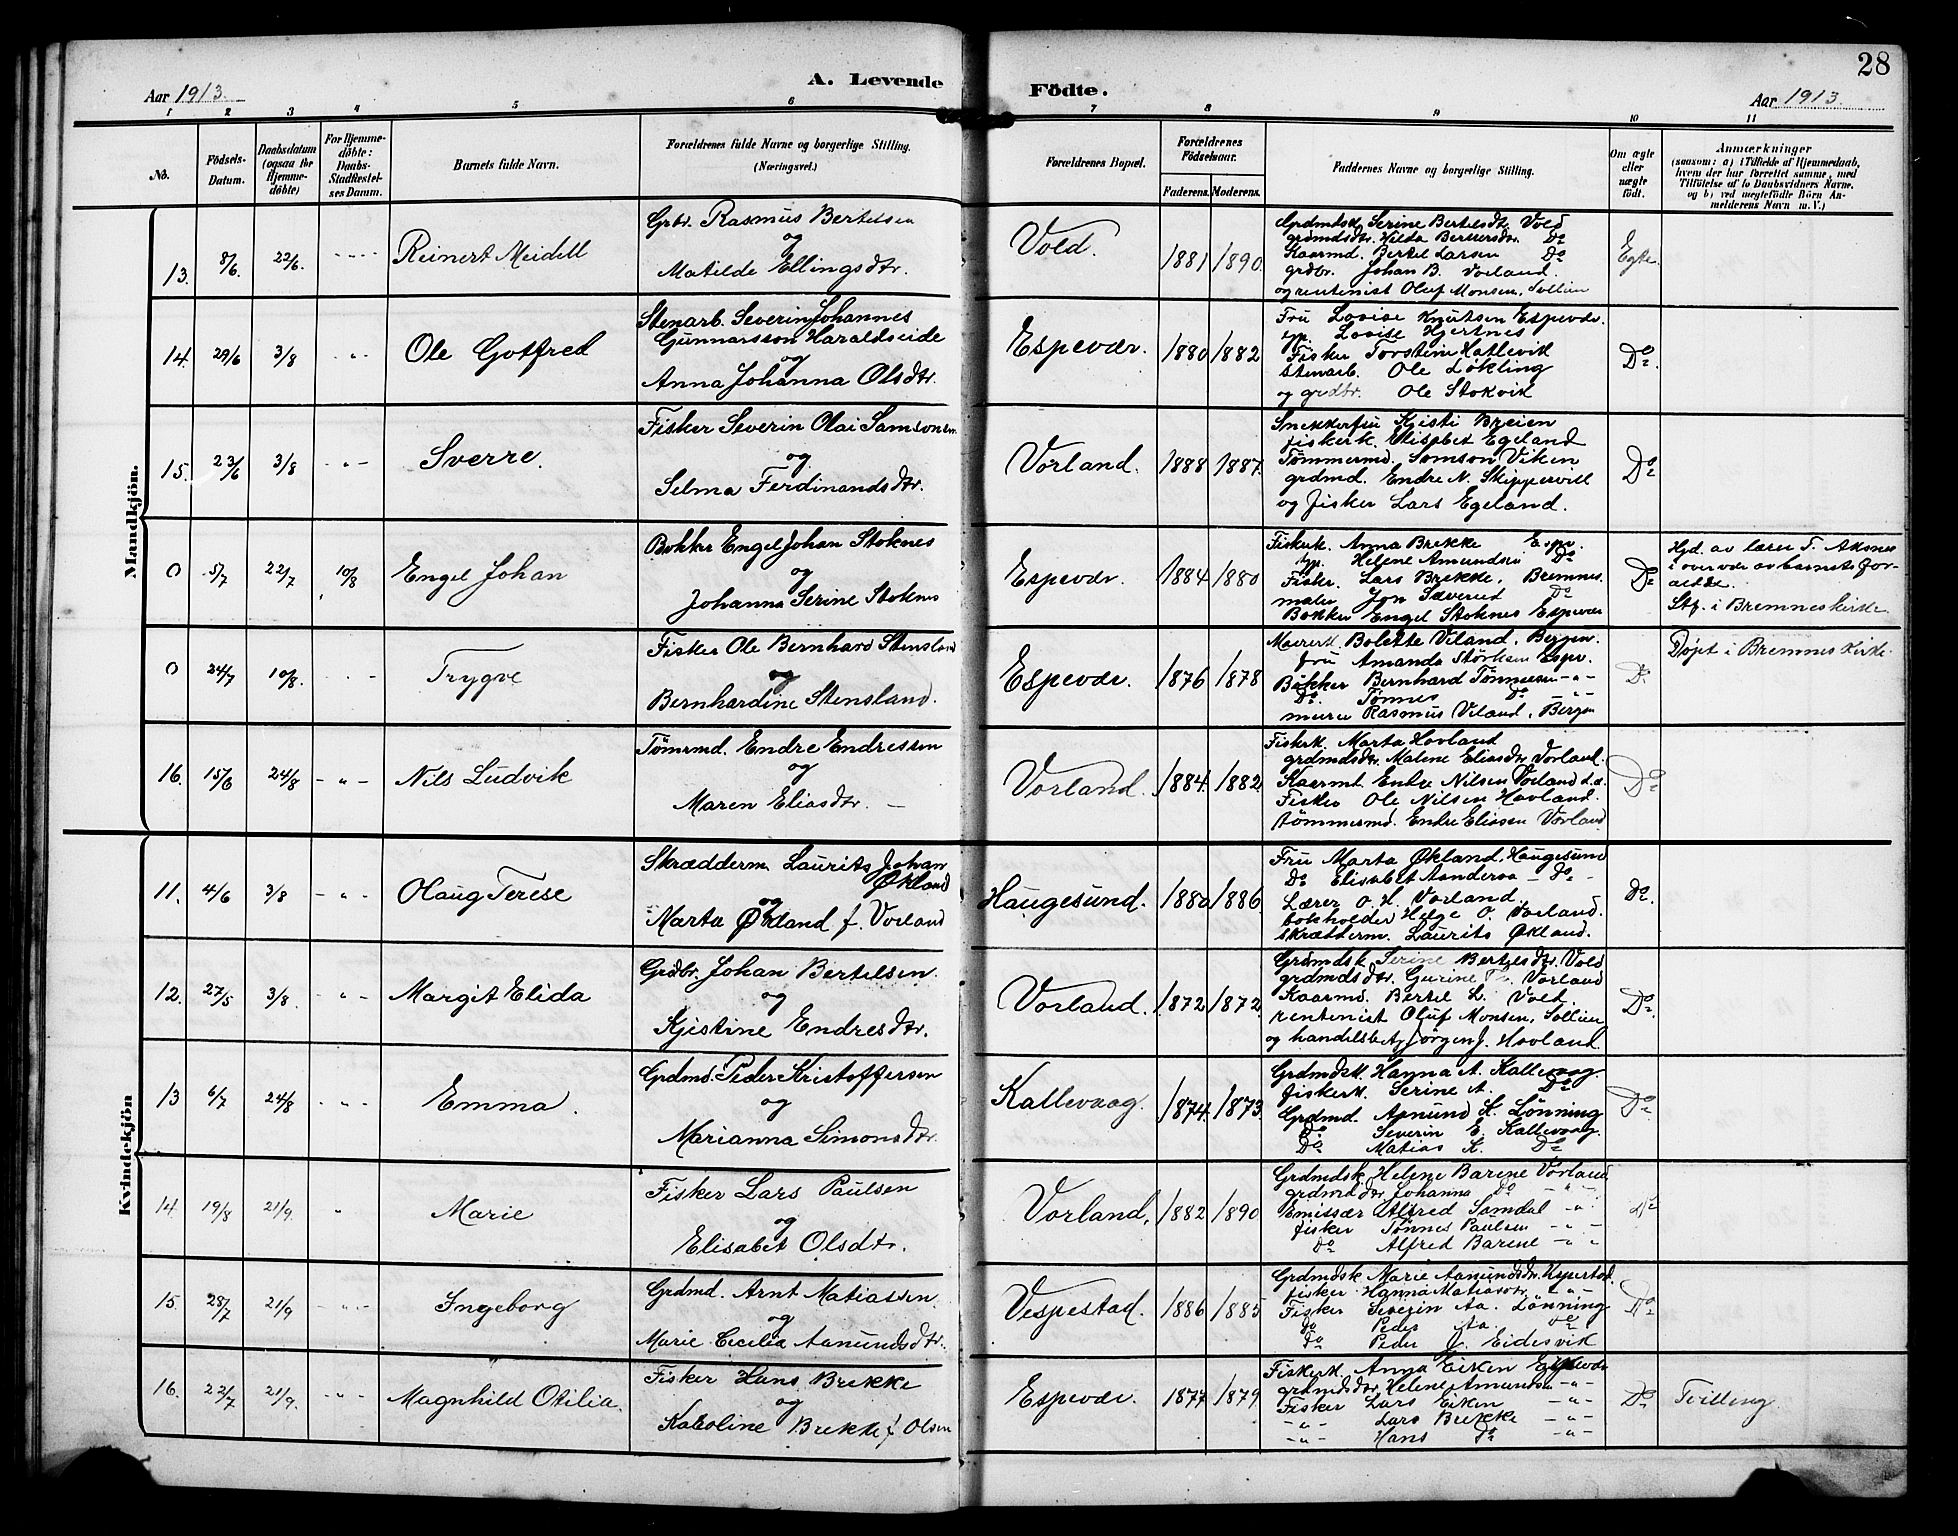 28
A. Levende Födte.
Aar 1913.
Aar 1913.
1 2 3 4 5 6 7 8 9 10 11
No.
Födsels-Datum.
Daabsdatum (ogsaa for Hjemmedöbte)
For Hjemmedöbte: Daabs-Stadfestelses Datum.
Barnets fulde Navn.
Forældrenes fulde Navne og borgerlige Stilling. (Næringsvei.)
Forældrenes Bopæl.
Forældrenes Födselsaar.
Faderens. Moderens.
Faddernes Navne og borgerlige Stilling.
Om ægte eller uægte födt.
Anmærkninger
(saasom: a) i Tilfælde af Hjemmedaab,
hvem der har forrettet samme, med
Tilföielse af to Daabsvidners Navne.
og b) ved uægtefödte Börn An-
melderens Navn m. V.)
Mandkjön.
13. 8/6. 22/6. Reinert Meidell
Grbr. Rasmus Bertelsen
og
Matilde Ellingsdtr.
Vold. 1881 1890.
Grdmdsk. Serine Bertelsdtr. Vold
grdmdsdtr. Hilda Do
Kaarmd. Bertel Larsen Do
grdbr. Johan B. Vorland.
og rentenist Oluf Monsen,
Egte.
14. 29/6 3/8 " Ole Gotfred
Stenarb. Severin Johannes
Gunnarsson Haraldseide
og
Anna Johanna Olsdtr.
Espevær. 1880 1882
Fru Lovise Knutsen Espevær.
yp. Lovise Hjertnes
Fisker Torstein Hatlevik
Stenarb. Ole Løkling
og grdbr. Ole Stokvik
Do
15. 23/6 3/8 " Sverre.
Fisker Severin Olai Samsonsen
og
Selma Ferdinandsdtr.
Vorland. 1888 1887.
Snekkerfru Kjisti Breien
fiskerk. Elisabet Egeland
Tømmermd. Samson Viken
grdmd. Endre N. Skippervill
og fisker Lars Egeland.
Do
0 5/7 22/7 10/8 Engel Johan
Bøkker Engel Johan Stoknes
og
Johanna Serine Stoknes
Espevær. 1884 1880
Fiskerk. Anna Brekke Espv.
yp. Helene Amundsen Do
Fisker. Lars Brekke. Bremnes.
maler Jon Sæverud Do
Bøkker Engel Stoknes Espevær
Do
Hjd. av lærer T. Aksnes
i overvær av barnets for-
ældre.
Stf. i Bremnes kirke
0 24/7 10/8. Trygve
Fisker Ole Bernhard Stensland
og
Bernhardine Stensland.
Espevær. 1876 1878
Murerk. Bolette Viland. Bergen.
fru Amanda Størksen Espv.
Bøkker Bernhard Tønnesen "
Do. Tønnes Do "
murer Rasmus Viland, Bergen
Do
Døpt i Bremnes kirke.
16. 15/6 24/8 " Nils Ludvik
Tømrmd. Endre Endressen
og
Maren Eliasdtr.
Vorland. 1884. 1882
Fiskerk. Marta Hovland
grdmdsdtr. Malene Eliasdtr Vorland.
Kaarmd. Endre Nilsen Vorland
Fisker Ole Nilsen Hovland.
tømmermd. Endre Eliassen Vorland
Do
Kvindekjön
11. 4/6 3/8 " Olaug Terese
Skrædderm. Laurits Johan
Økland
og
Marta Økland f. Vorland
Haugesund. 1880 1886.
Fru Marta Økland, Haugesund
Do Elisabet Aanderaa Do
Lærer O. H. Vorland.
bokholder Helge O. Vorland.
skrædderm. Laurits Økland.
Do
12. 27/5 3/8 " Margit Elida
Grdbr. Johan Bertelsen
og
Kjistine Endresdtr.
Vorland. 1872 1872
Grdmdsk. Serine Bertelsdtr. Vold
grdmdsdtr. Gurine Vorland
Kaarmd. Bertel L. Vold.
rentenist Oluf Monsen,
og handelsbetj. Jørgen J. Hovland.
Do.
13 6/7 24/8 " Emma.
Grdmd. Peder Kristoffersen
og
Marianna Simonsdtr.
Kallevaag. 1874. 1873.
Grdmdsk. Hanna A. Kallevaag.
fiskerk. Serine A. Do
Grdmd. Amund K. Lønning
Do Severin E. Kallevaag.
Do Matias K. Do
Do
14. 19/8 21/9. " Marie
Fisker Lars Paulsen
og
Elisabet Olsdtr.
Vorland, 1882 1890
Grdmdsk. Helene Barene Vorland
grdmdsdtr. Johanna Do "
Emissær Alfred Somdal "
fisker Tønnes Paulsen "
Do Alfred Barene "
Do
15. 28/7 21/9 " Ingeborg
Grdmd. Arnt Matiassen
og
Marie Cecilia Aamundsdtr.
Vespestad. 1886 1885
Grdmdsk. Marie Aamundsdtr. Vespestad.
fisker Hanna Matiasdtr. "
Fisker Severin Aa. Lønning
Do Peder Aa. Do
Do Peder J. Eidesvik
Do
16. 22/7 21/9. " Magnhild Otilia.
Fisker Hans Brekke
og
Karoline Brekke f. Olsen
Espevær. 1877 1879
Fiskerk. Anna Eiken Espevær
grdmdsdtr. Helene Amundsen "
Fisker Lars Eiken "
" Lars Brekke "
" Hans Do "
Do
Tvilling.